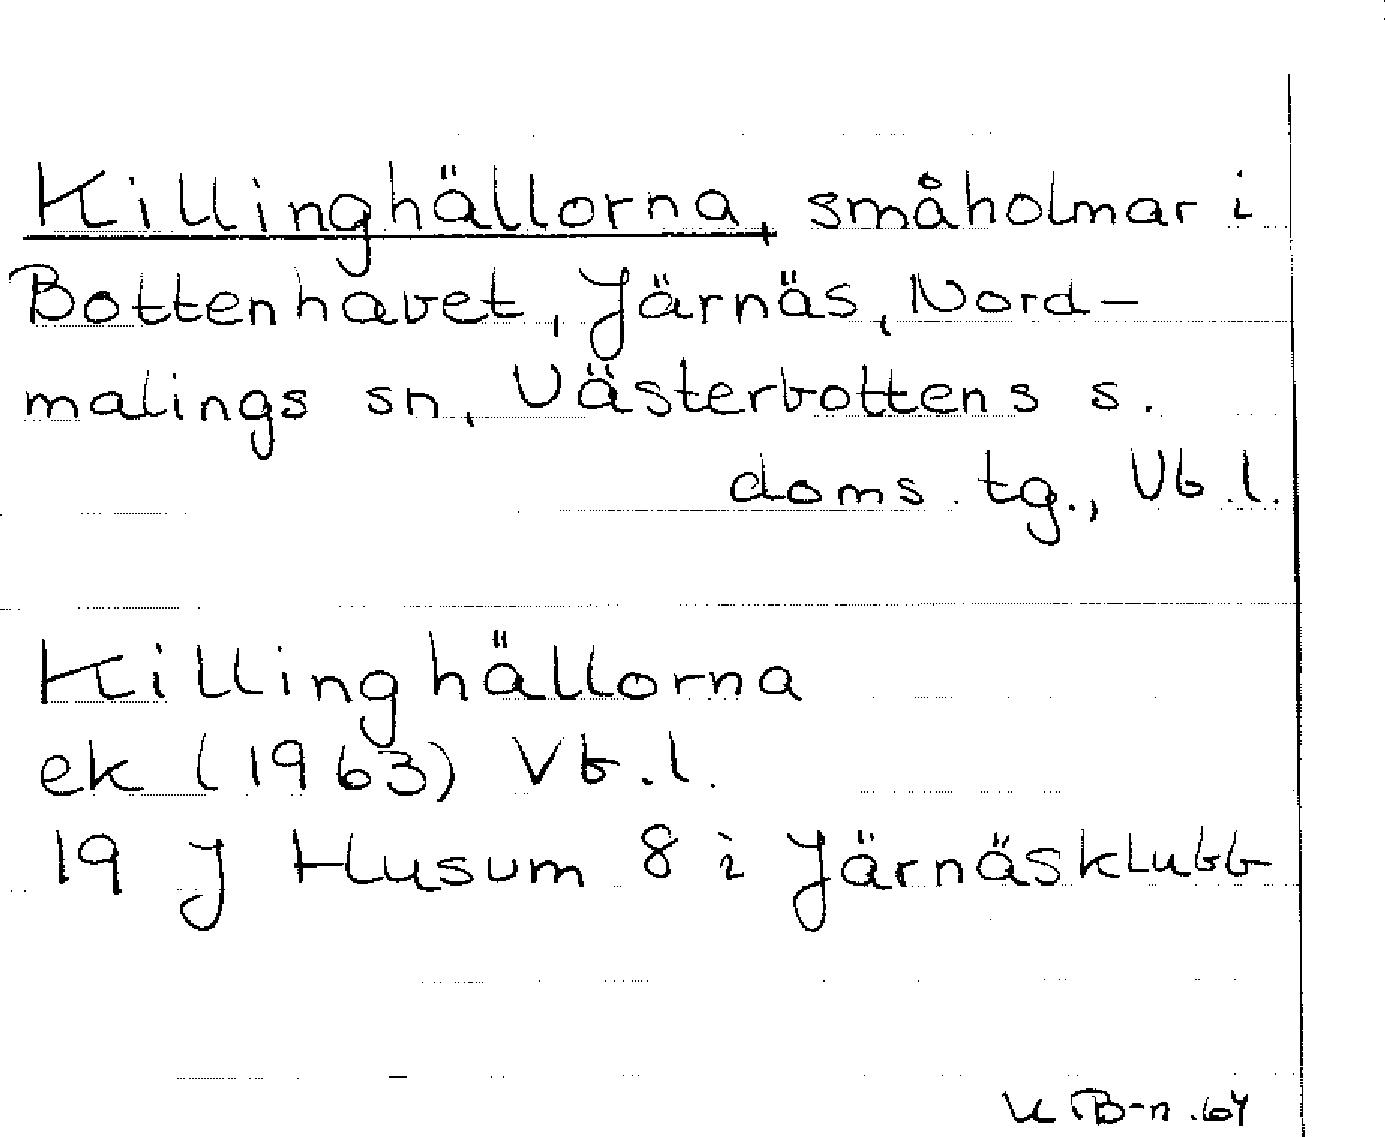 Killinghällorna, småholmar i
Bottenhavet, Järnäs, Nord-
malings sn, Västerbottens s.
doms. tg., Vb.l.
Killinghällorna
ek (1963) Vb.l.
19 J Husum 8 i Järnäsklubb
B-n.64